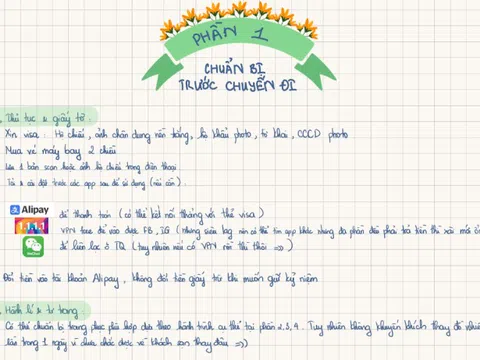 PHẦN 1
CHUẨN BỊ
TRƯỚC CHUYẾN ĐI
Thủ tục & giấy tờ :
Xin visa : Hộ chiếu, ảnh chân dung nền trắng, hộ khẩu photo, tờ khai, CCCD photo
Mua vé máy bay 2 chiều
Lưu 1 bản scan hoặc ảnh hộ chiếu trong điện thoại
Tải & cài đặt trước các app sau để sử dụng (nếu cần) :
Alipay để thanh toán (có thể kết nối thẳng với thẻ visa)
1.1.1.1 VPN fake để vào được FB, IG (nhưng siêu lag nên có thể tìm app khác nhưng đa phần đều phải trả tiền thì xài mới
WeChat để liên lạc ở TQ (tuy nhiên nếu có VPN rồi thì thôi =>)
Đổi tiền vào tài khoản Alipay, không đổi tiền giấy trừ khi muốn giữ kỷ niệm
Hành lí & tư trang :
Có thể chuẩn bị trang phục phù hợp dựa theo hành trình cụ thể tại phần 2, 3, 4. Tuy nhiên không khuyến khích thay đồ nhiều
lần trong 1 ngày vì chưa chắc được về khách sạn thay đâu =))